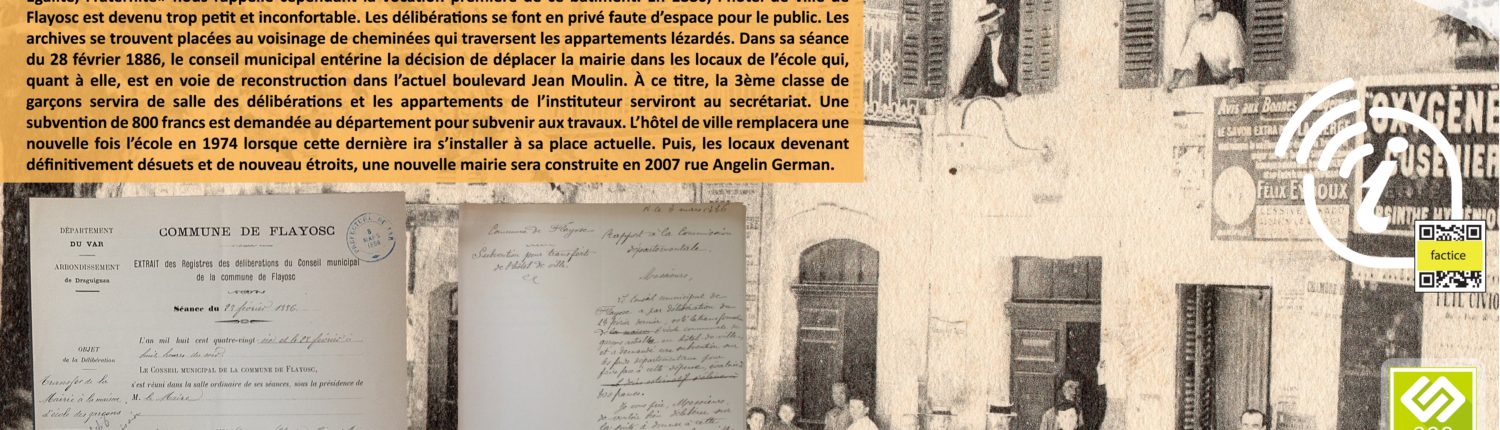 Égalité, Fraternité» nous rappelle cependant la vocation première de ce bâtiment. En 1886, l'hôtel de ville de
Flayosc est devenu trop petit et inconfortable. Les délibérations se font en privé faute d'espace pour le public. Les
archives se trouvent placées au voisinage de cheminées qui traversent les appartements lézardés. Dans sa séance
du 28 février 1886, le conseil municipal entérine la décision de déplacer la mairie dans les locaux de l'école qui,
quant à elle, est en voie de reconstruction dans l'actuel boulevard Jean Moulin. À ce titre, la 3ème classe de
garçons servira de salle des délibérations et les appartements de l'instituteur serviront au secrétariat. Une
subvention de 800 francs est demandée au département pour subvenir aux travaux. L'hôtel de ville remplacera une
nouvelle fois l'école en 1974 lorsque cette dernière ira s'installer à sa place actuelle. Puis, les locaux devenant
définitivement désuets et de nouveau étroits, une nouvelle mairie sera construite en 2007 rue Angelin German.
DÉPARTEMENT
DU VAR
ARRONDISSEMENT
de Draguignan
COMMUNE DE FLAYOSC
EXTRAIT des Registres des délibérations du Conseil municipal
de la commune de Flayosc
Séance du 28 février 1886.
L'an mil huit cent quatre-vingt-six et le 28 février à
huit heures du soir
OBJET
de la Délibération
LE CONSEIL MUNICIPAL DE LA COMMUNE DE FLAYOSC,
s'est réuni dans la salle ordinaire de ses séances, sous la présidence de
M. le Maire
Transfer de la
Mairie à la maison
d'école des garçons
PRÉFECTURE DU VAR
Commune de Flayosc
Subvention pour transfert
de l'hôtel de ville.
Rapport à la Commission
départementale.
Messieurs,
Le Conseil municipal de
Flayosc a par délibération du
AVIS AUX BONNES
LE SAVON EXTRA
FÉLIX EYROUX
OXYGÉNÉE
CUSENIER
ABSINTHE HYGIÉNIQUE
factice